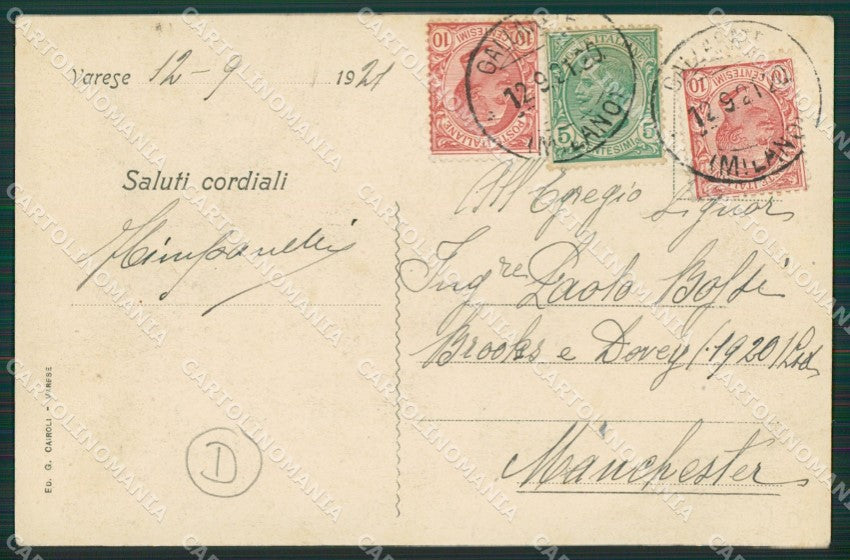 Varese 12-9 1921
Saluti cordiali
All'Egregio Signor
Ing.re Paolo
Brooks e Dovey (1920) Ltd
Manchester
D
ED. G. CAIROLI - VARESE
10 CENTESIMI 10
POSTE ITALIANE
GALLARATE
12.9.21.20
(MILANO)
5 CENTESIMI 5
GALLARATE
12.9.21.20
(MILANO)
10 CENTESIMI 10
CARTOLINOMANIA